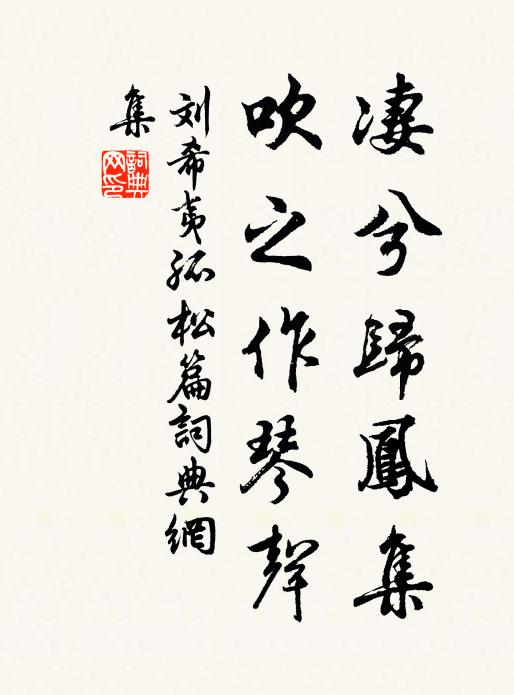 凄兮歸鳳集
吹之作琴聲
刘希夷孤松篇詞典網
集
詞典
网印